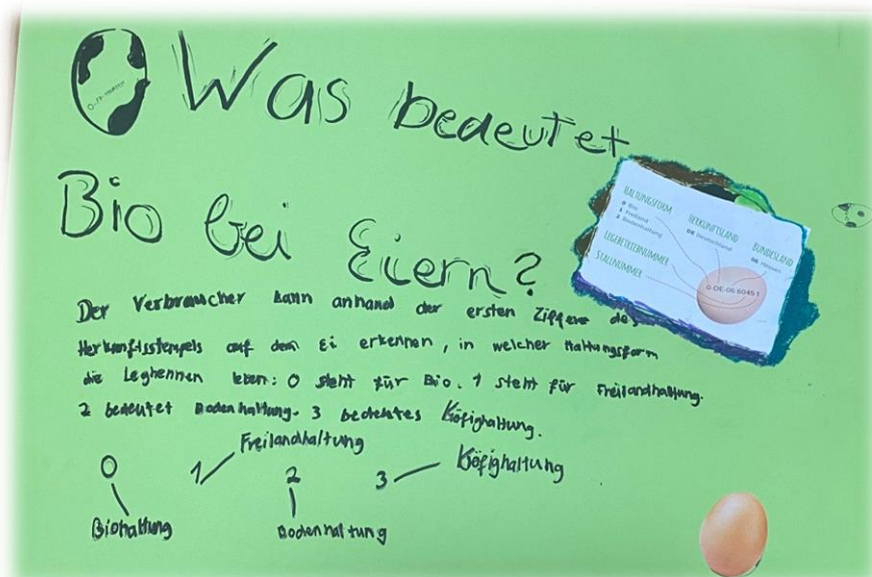 Was bedeutet
Bio bei Eiern?
HALTUNGSFORM
0 Bio
1 Freiland
2 Bodenhaltung
HERKUNFTSLAND
DE Deutschland
BUNDESLAND
06 Hessen
LEGEBETRIEBNUMMER
STALLNUMMER
0-DE-06 6045 1
Der Verbraucher kann anhand der ersten Ziffere des
Herkunftsstempels auf dem Ei erkennen, in welcher Haltungsform
die Leghennen leben: 0 steht für Bio. 1 steht für Freilandhaltung.
2 bedeutet Bodenhaltung. 3 bedeutes Käfighaltung.
0 1 Freilandhaltung 2 3 Käfighaltung
Biohaltung Bodenhaltung